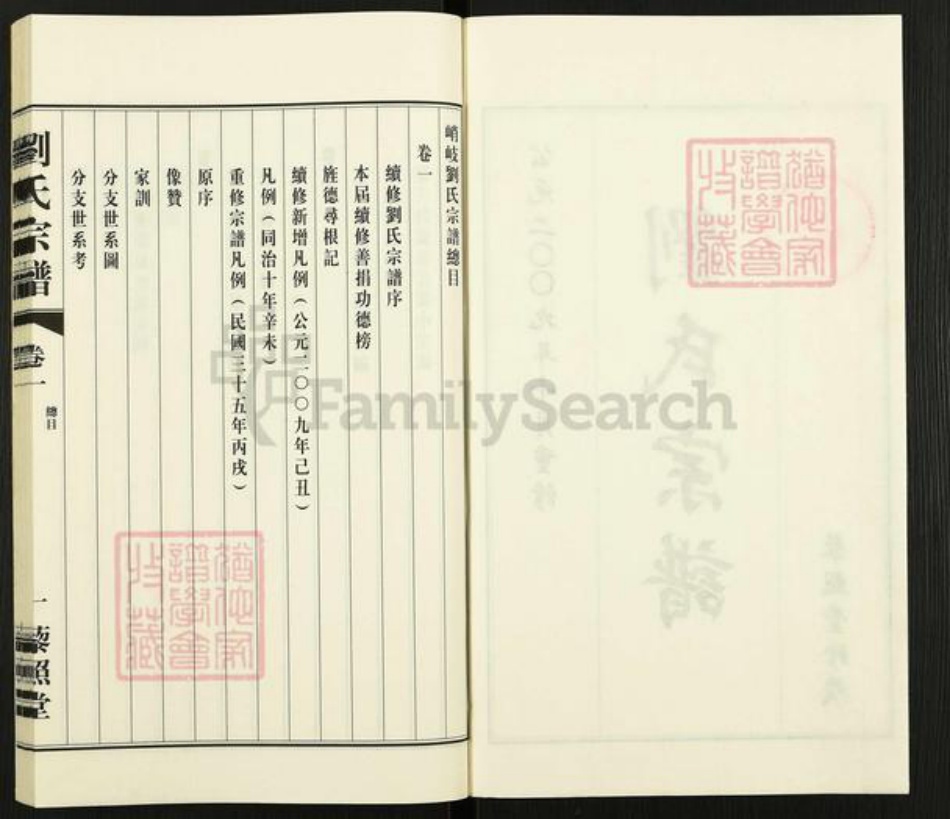 峭岐劉氏宗譜總目
卷一
續修劉氏宗譜序
本屆續修善捐功德榜
旌德尋根記
續修新增凡例(公元二〇〇九年己丑)
凡例(同治十年辛未)
重修宗譜凡例(民國三十五年丙戌)
原序
像贊
家訓
分支世系圖
分支世系考
劉氏宗譜
卷一
總目
一
藜照堂
劉氏宗譜
譜學會
收藏
譜學會
收藏
FamilySearch